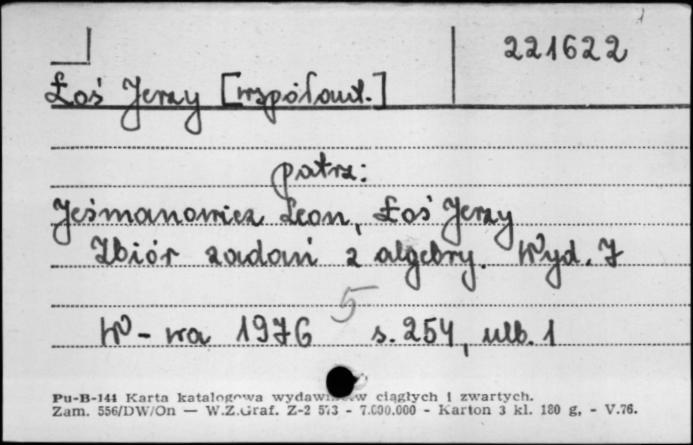 221622
Łoś Jerzy [współaut.]
patrz:
Jeśmanowicz Leon, Łoś Jerzy
Zbiór zadań z algebry. Wyd. 7
5
W-wa 1976 s. 254, nlb. 1
Pu-B-144 Karta katalogowa wydawnictw ciągłych i zwartych.
Zam. 556/DW/On — W.Z.Graf. Z-2 573 - 7.000.000 - Karton 3 kl. 180 g, - V.76.